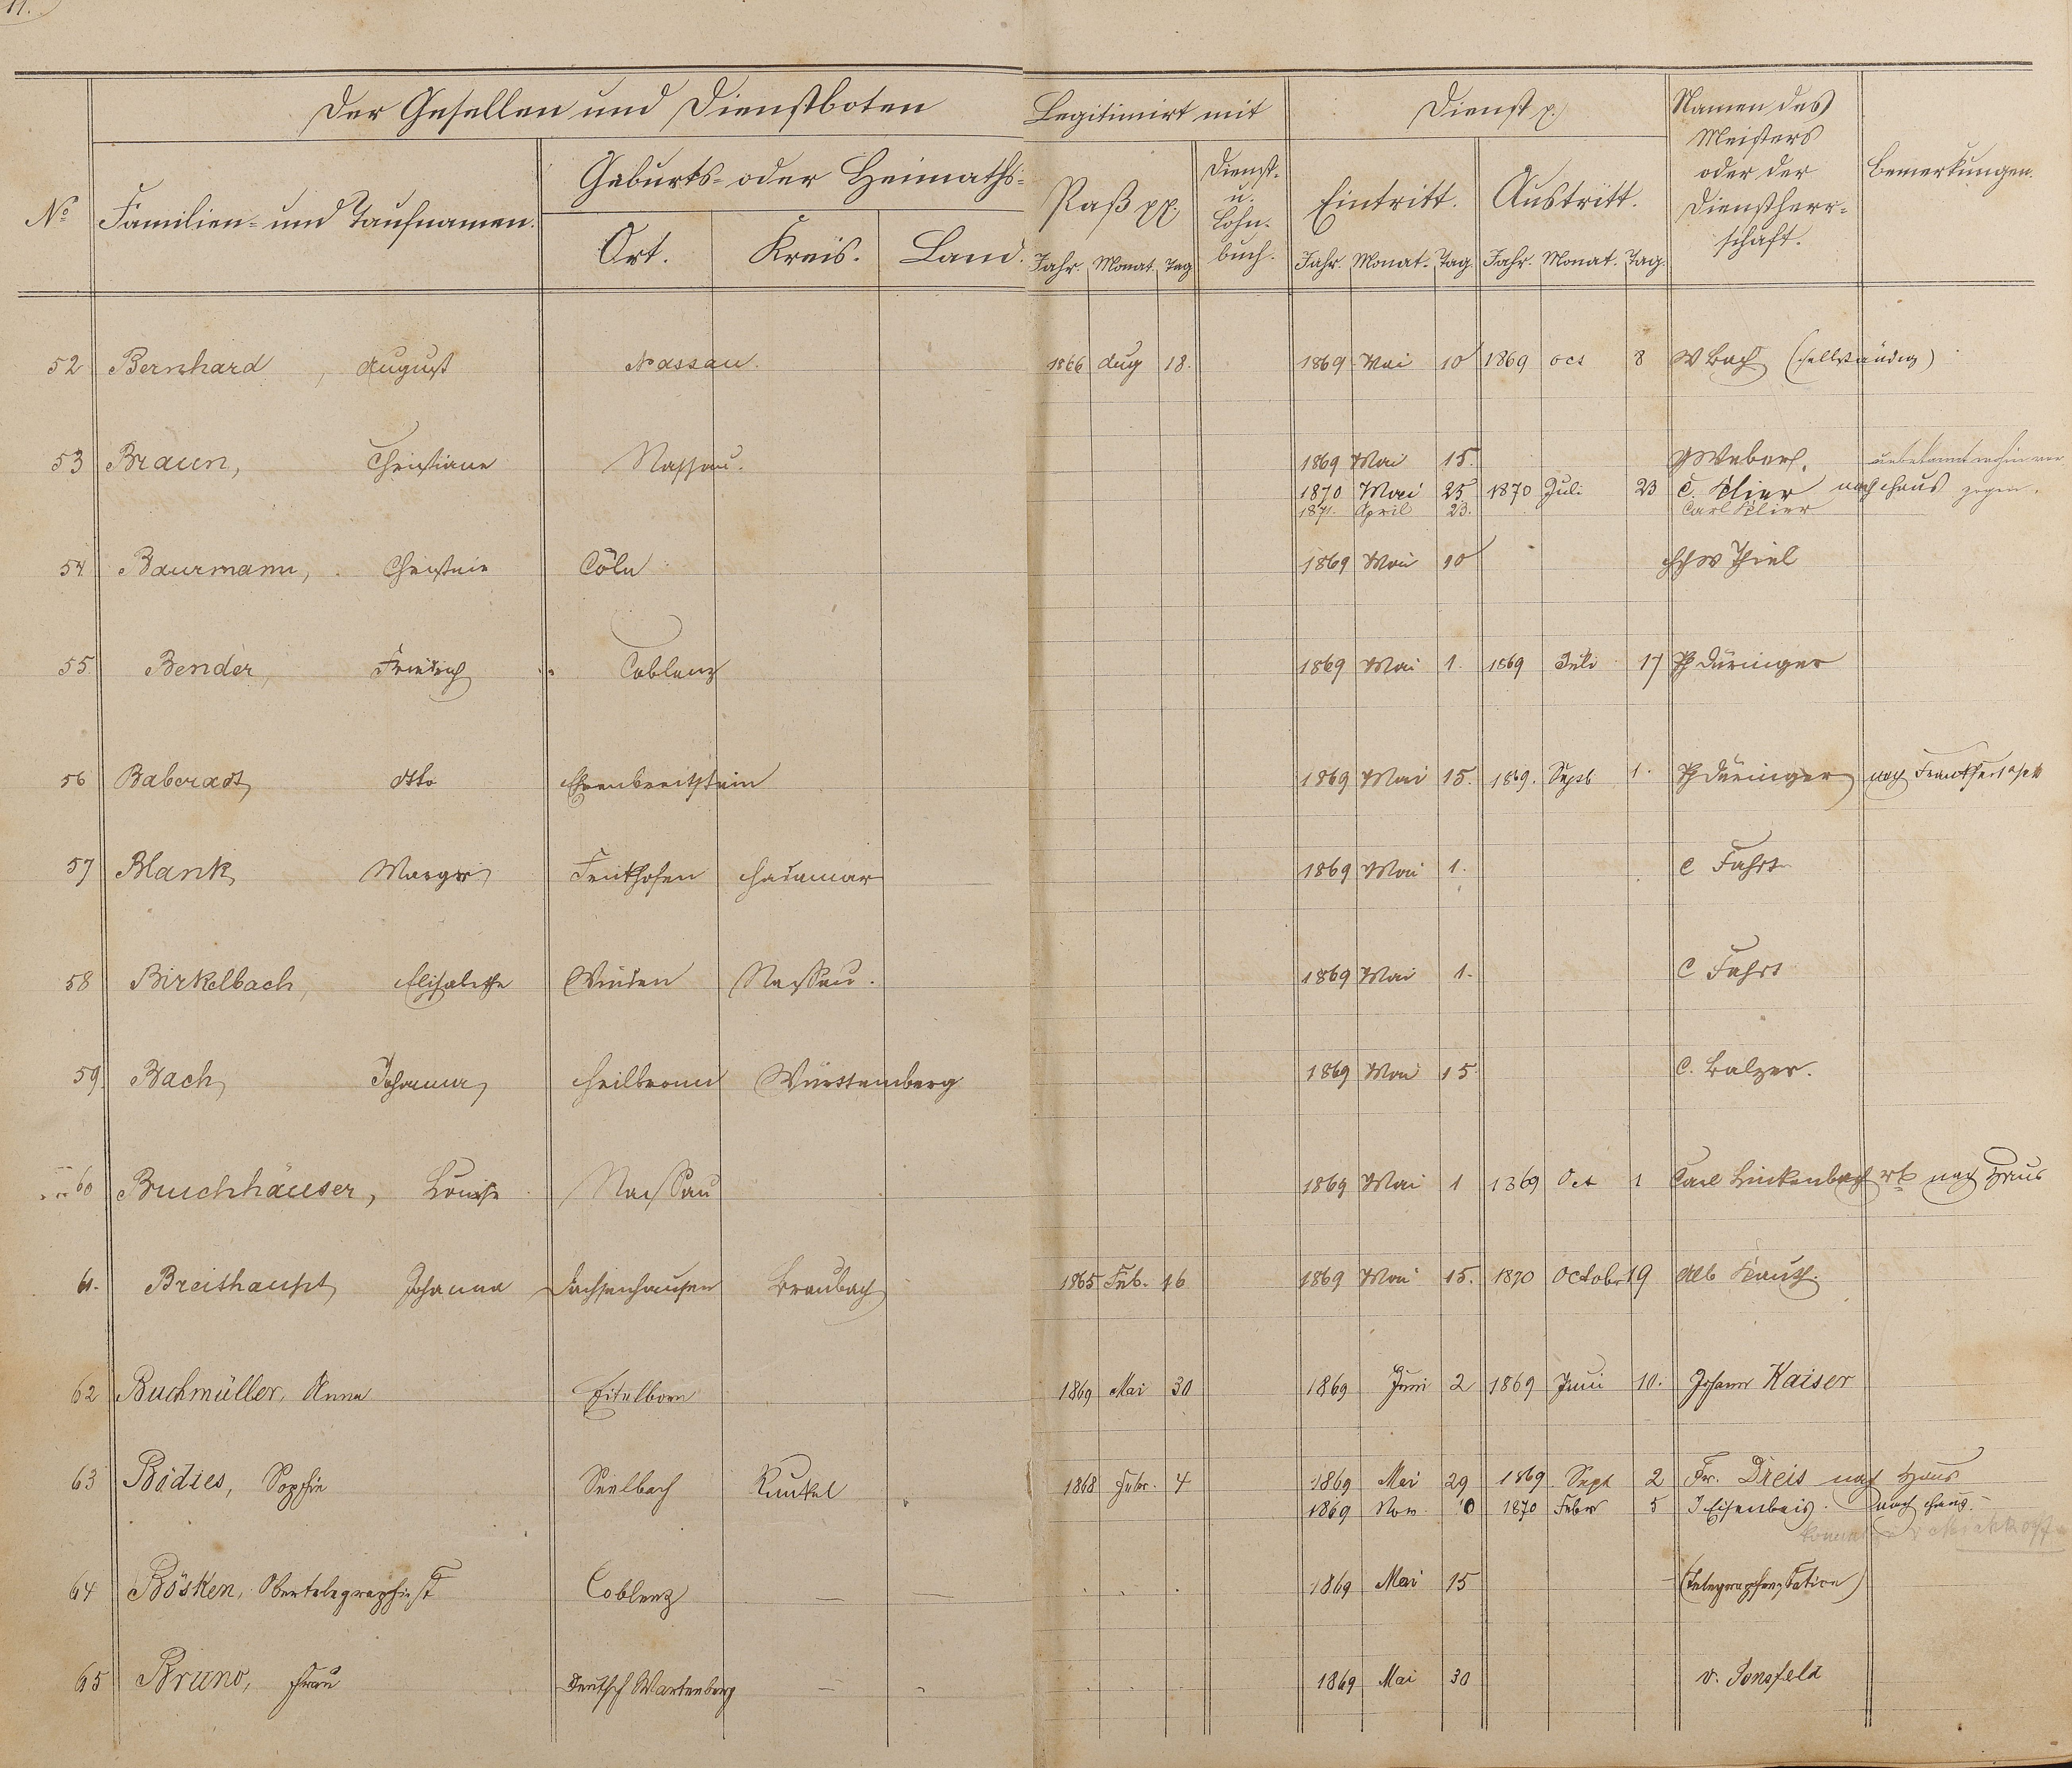 11.
Der Gesellen und Dienstboten Legitimirt mit Dienst p.
Namen des Meisters oder der Dienstherr=schaft.
Bemerkungen.
No Familien- und Taufnamen. Geburts- oder Heimaths=
Paß pp. Dienst- u. Lohn-buch. Eintritt. Austritt.
Ort. Kreis. Land. Jahr. Monat. Tag Jahr. Monat. Tag. Jahr. Monat. Tag.
52 Bernhard, August Nassau. 1866 Aug 18. 1869 Mai 10 1869 Oct 8 W Bach (selbständig)
53 Braun, Christiane Nassau. 1869 Mai 15. G Weber. unbekannt wohin ver
1870 Mai 25 1870 Juli 23 C. Klier nach Haus zogen.
1871. April 23. Carl Klier
54 Baurmann, Christine Cöln 1869 Mai 10 Thiel
55. Bender, Friedrich Coblenz 1869 Mai 1. 1869 Juli 17 Ph Düringer
56 Baberadt, Otto Ehrenbreitstein 1869 Mai 15. 1869. Septb 1. Ph Düringer nach Frankfurt a/M
57 Blank, Margr. Frickhofen Hadamar 1869 Mai 1. C Fahrt
58 Birkelbach, Elisabethe Winden Nassau. 1869 Mai 1. C Fahrt
59. Bach, Johanna Heilbronn Württemberg 1869 Mai 15. C. Balzer.
60 Bruchhäuser, Louise Nassau 1869 Mai 1 1869 Oct 1 Carl Linkenbach nach Haus
61. Breithaupt, Johanna Sachsenhausen Braubach 1865 Feb. 16 1869 Mai 15. 1870 October 19 Alb Kauth.
62 Buchmüller, Anna Eitelborn 1869 Mai 30 1869 Juni 2 1869 Juni 10. Johann Kaiser
63 Bödies, Sophie Seelbach Runkel 1868 Febr. 4 1869 Mai 29 1869. Sept 2 Fr. Dreis nach Haus
1869 Nov. 10 1870 Febr 5 J Eisenbeis. nach Haus.
64 Bösken, Obertelegraphist Coblenz — — 1869 Mai 15 (Telegraphenstation)
65 Bruno, Frau Deutsch Wartenberg — 1869 Mai 30 v. Sonsfeld